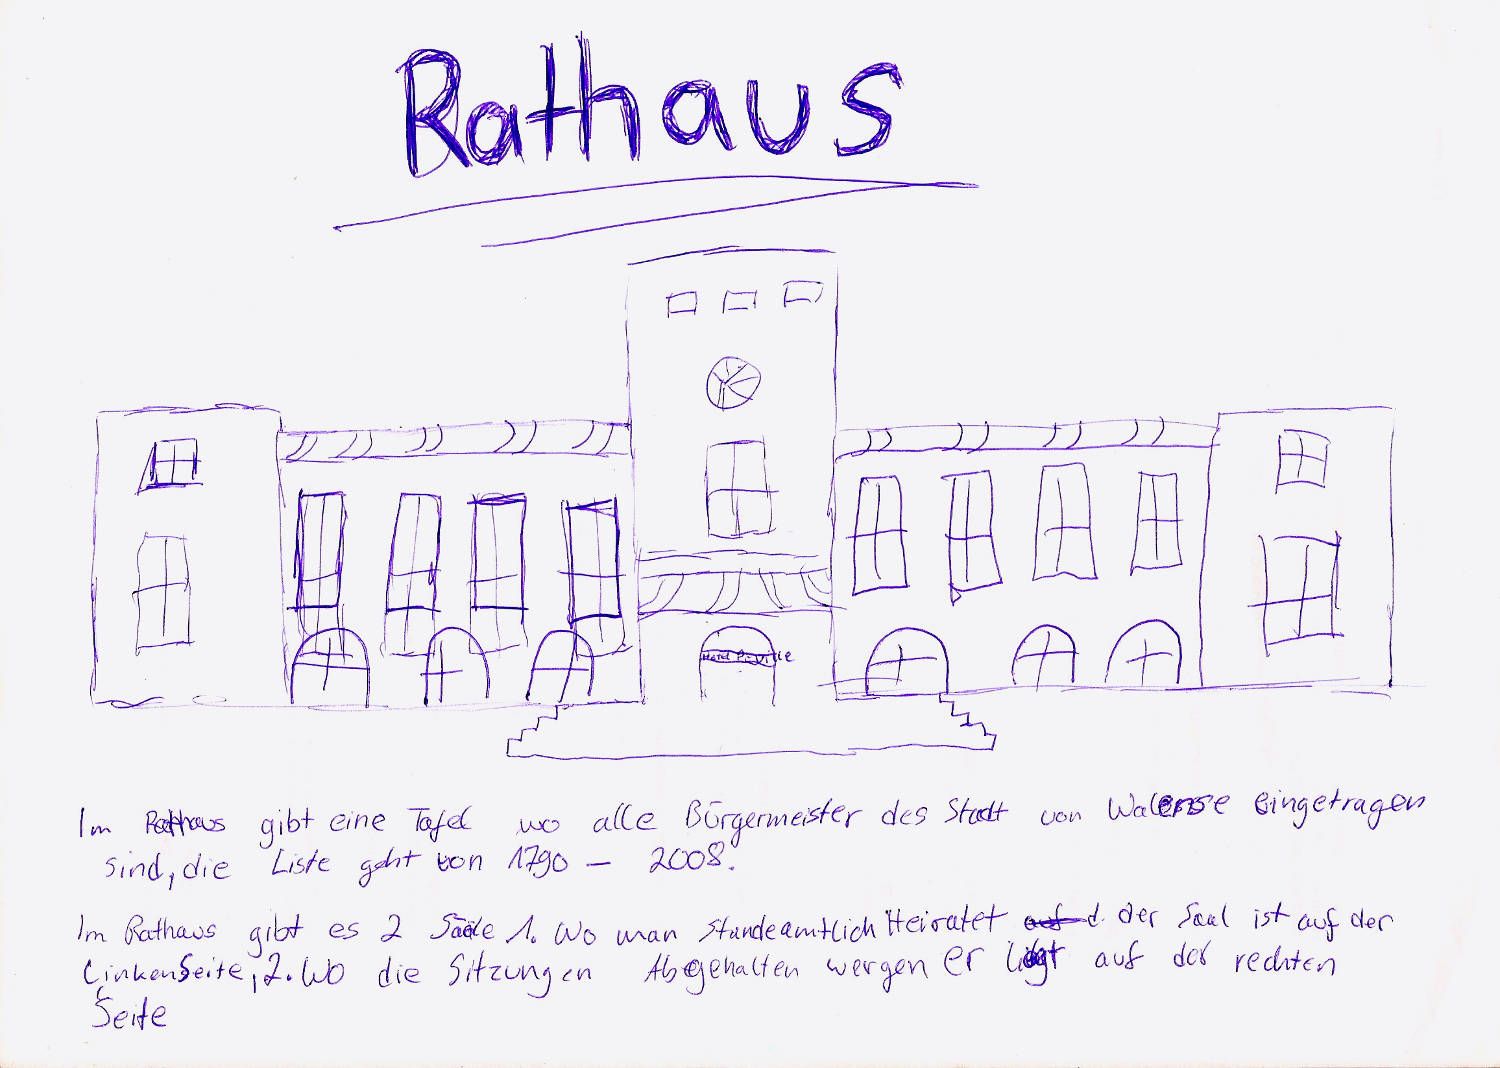 Rathaus
Im Rathaus gibt eine Tafel wo alle Bürgermeister des Stadt von eingetragen
sind, die Liste geht von 1790 – 2008.
Im Rathaus gibt es 2 Säale 1. Wo man standeamtlich Heiratet d. der Saal ist auf der
Linkenseite, 2. Wo die Sitzungen Abgehalten wergen er liegt auf der rechten
Seite